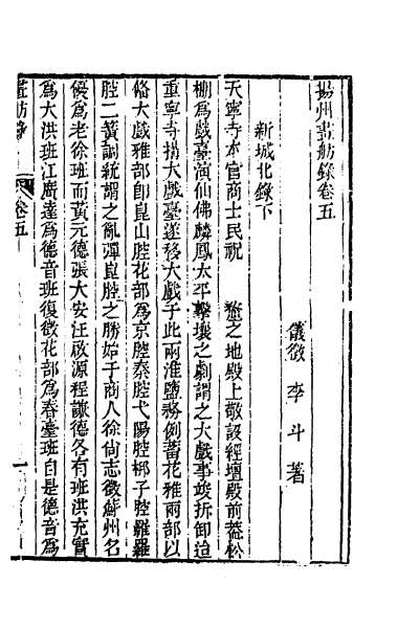 揚州畫舫錄卷五
儀徵 李斗 著
新城北錄下
天寧寺本官商士民祝 釐之地殿上敬設經壇殿前蓋松
棚為戲臺演仙佛麟鳳太平擊壤之劇謂之大戲事竣拆卸迨
重寧寺構大戲臺遂移大戲于此兩淮鹽務例蓄花雅兩部以
備大戲雅部即崑山腔花部為京腔秦腔弋陽腔梆子腔羅羅
腔二簧調統謂之亂彈崑腔之勝始于商人徐尚志徵蘇州名
優為老徐班而黃元德張大安汪啟源程謙德各有班洪充實
為大洪班江廣達為德音班復徵花部為春臺班自是德音為
卷五
一